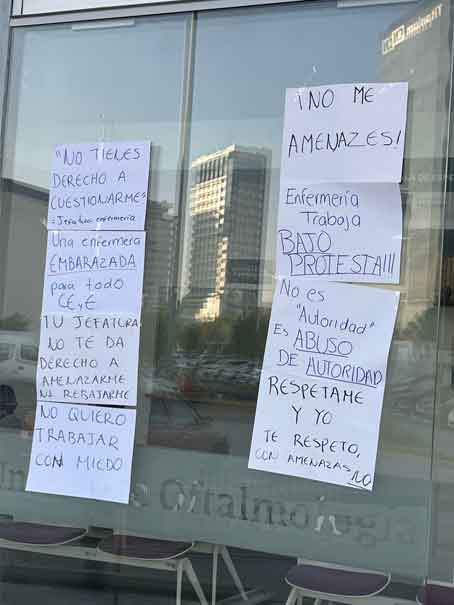 "NO TIENES
DERECHO A
CUESTIONARME"
=Jefatura enfermería
Una enfermera
EMBARAZADA
para todo
CE y E.
TU JEFATURA
NO TE DA
DERECHO A
AMENAZARME
NI REBAJARME
NO QUIERO
TRABAJAR
CON MIEDO
¡NO ME
AMENAZES!
Enfermería
Trabaja
BAJO
PROTESTA!!!
No es
"Autoridad"
Es ABUSO
DE AUTORIDAD
RESPETAME
Y YO
TE RESPETO,
CON AMENAZAS NO
Oftalmología